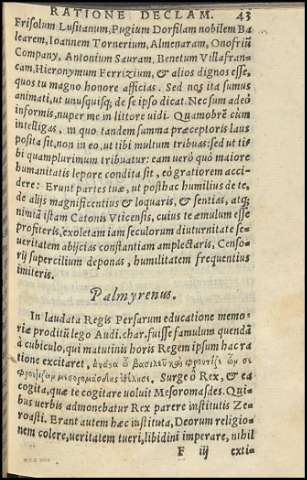 RATIONE DECLAM. 43
Frisolum Lusitanum, Pugium Dorsilam nobilem Ba
learem, Ioannem Tornerium, Almenaram, Onofriũ
Company, Antonium Sauram, Benetum Villafran-
cam, Hieronymum Ferrizium, & alios dignos esse,
quos tu magno honore afficias. Sed nos ita sumus
animati, ut unusquisq; de se ipso dicat. Nec sum adeò
informis, nuper me in littore uidi. Quamobrē cùm
intelligas, in quo tandem summa præceptoris laus
posita sit, non in eo, ut tibi multum tribuas: sed ut ti-
bi quamplurimum tribuatur: eam uerò quò maiore
humanitatis lepore condita sit, eò gratiorem acci-
dere: Erunt partes tuæ, ut posthac humilius de te,
de alijs magnificentius & loquaris, & sentias, atq;
nimiã istam Catonis Vticensis, cuius te æmulum esse
profiteris, exoletam iam seculorum diuturnitate se-
ueritatem abijcias constantiam amplectaris, Censo-
rij supercilium deponas, humilitatem frequentius
imiteris.
Palmyrenus.
In laudata Regis Persarum educatione memo-
riæ proditũ lego Audi. char, fuisse famulum quendã
à cubiculo, qui matutinis horis Regem ipsum hac ra
tione excitaret, ὦ βασιλεῦ καὶ φρόντιζε ὧν σε
Surge ô Rex, & ea
cogita, quæ te cogitare uoluit Mesoromasdes. Qui
bus uerbis admonebatur Rex parere institutis Zo
roasti. Erant autem hæc instituta, Deorum religio-
nem colere, ueritatem tueri, libidini imperare, nihil
F iij exti-